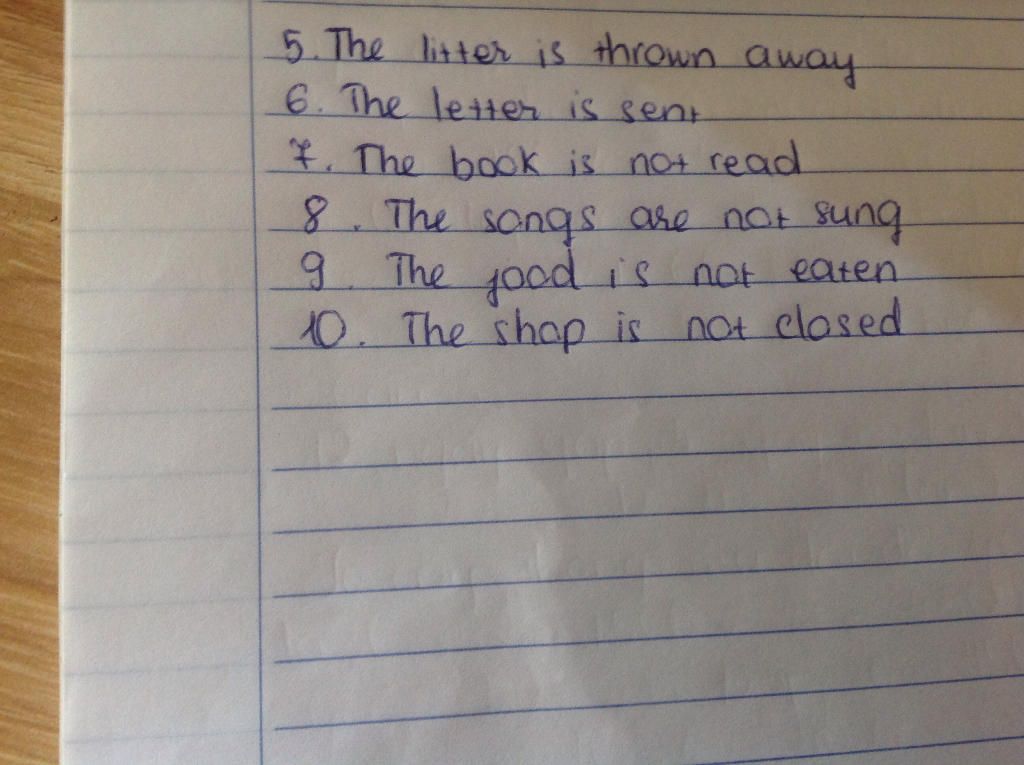 5. The litter is thrown away
6. The letter is sent
7. The book is not read
8. The songs are not sung
9. The food is not eaten
10. The shop is not closed